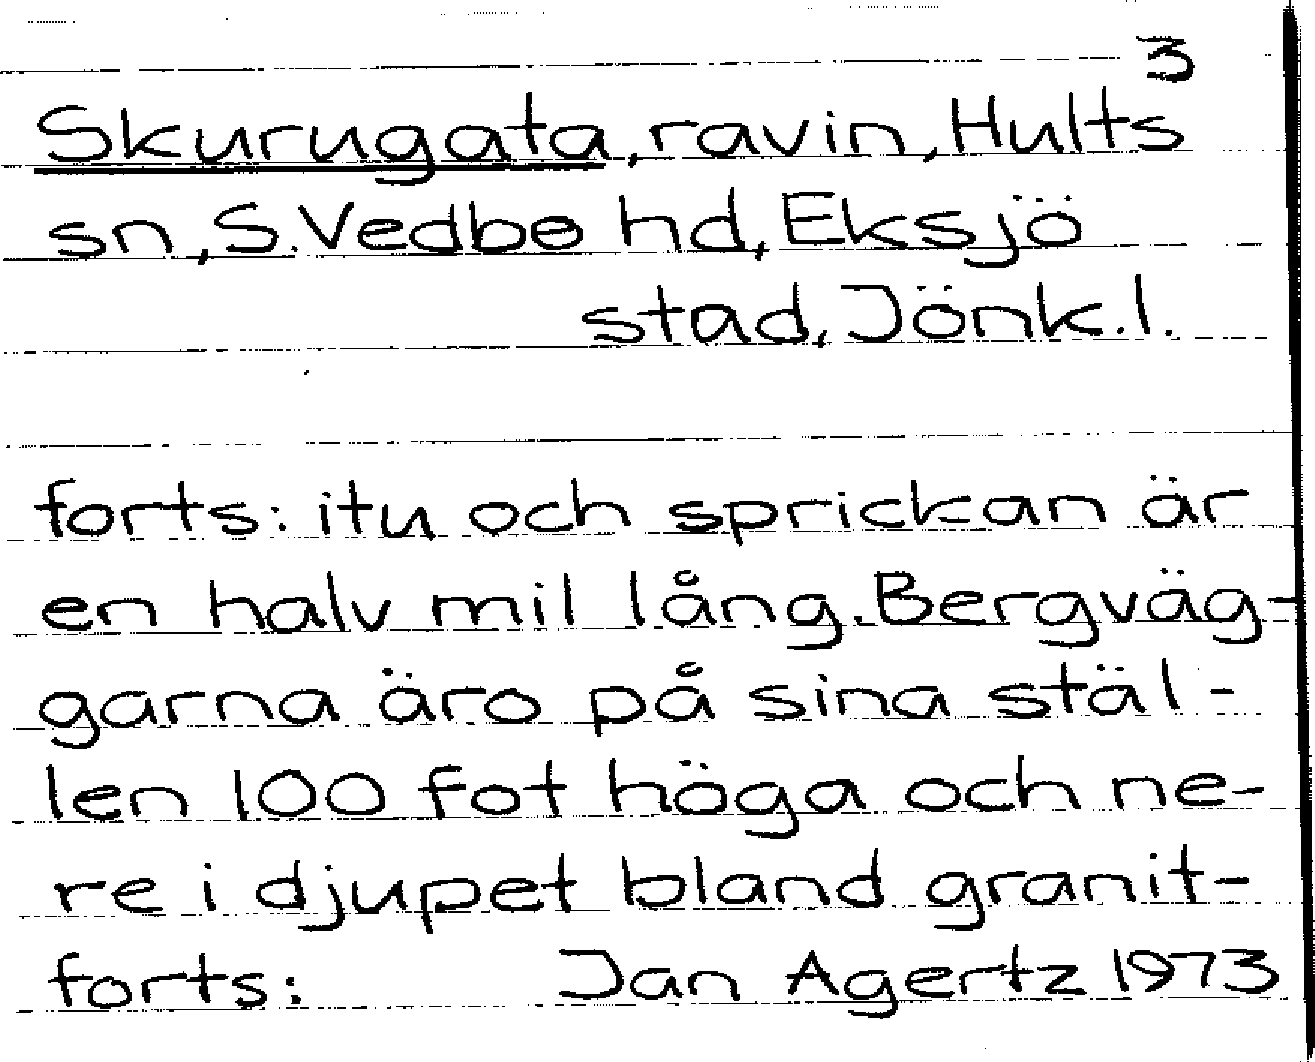 3
Skurugata, ravin, Hults
sn, S. Vedbo hd, Eksjö
stad, Jönk. l.
forts: itu och sprickan är
en halv mil lång. Bergväg-
garna äro på sina stäl-
len 100 fot höga och ne-
re i djupet bland granit-
forts: Jan Agertz 1973